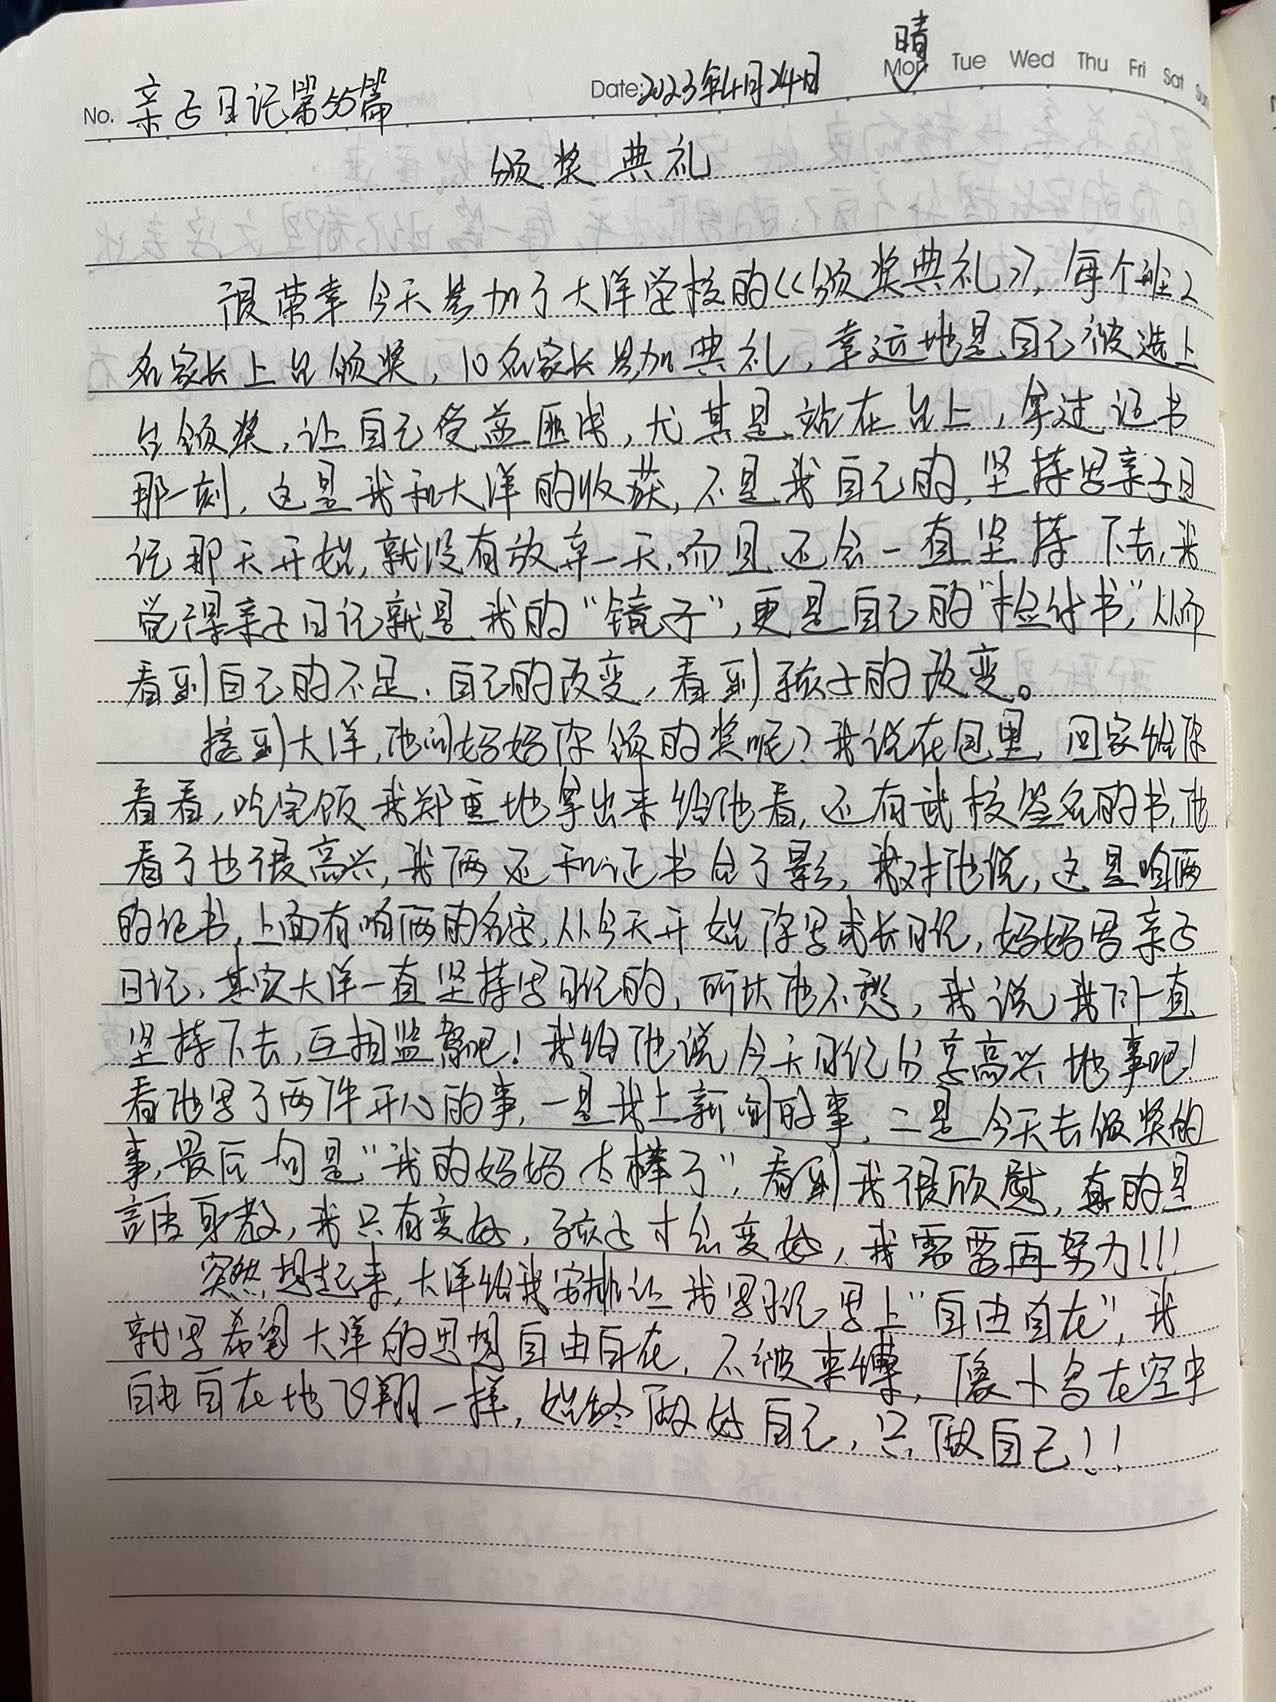 晴
No. 亲子日记第55篇 Date: 2023年4月24日 Mon Tue Wed Thu Fri Sat Sun
颁奖典礼
很荣幸今天参加了大洋学校的《颁奖典礼》,每个班2
名家长上台颁奖,10名家长参加典礼,幸运地是自己被选上
台领奖,让自己受益匪浅,尤其是站在台上,拿过证书
那一刻,这是我和大洋的收获,不是我自己的,坚持写亲子日
记那天开始,就没有放弃一天,而且还会一直坚持下去,我
觉得亲子日记就是我的“镜子”,更是自己的“检讨书”,从而
看到自己的不足、自己的改变,看到孩子的改变。
接到大洋,他问妈妈你领的奖呢?我说在包里,回家给你
看看,吃完饭我郑重地拿出来给他看,还有武校签名的书,他
看了也很高兴,我俩还和证书合了影,我对他说,这是咱俩
的证书,上面有咱俩的名字,从今天开始你写成长日记,妈妈写亲子
日记,其实大洋一直坚持写日记的,所以他不愁,我说,我们一直
坚持下去,互相监督吧!我给他说今天日记分享高兴地事吧!
看他写了两件开心的事,一是我上新闻的事,二是今天去领奖的
事,最后一句是“我的妈妈太棒了”,看到我很欣慰,真的是
言传身教,我只有变好,孩子才会变好,我需要再努力!!!
突然想起来,大洋给我安排让我写日记写上“自由自在”,我
就写希望大洋的思想自由自在,不被束缚,像小鸟在空中
自由自在地飞翔一样,始终做好自己,只做自己!!